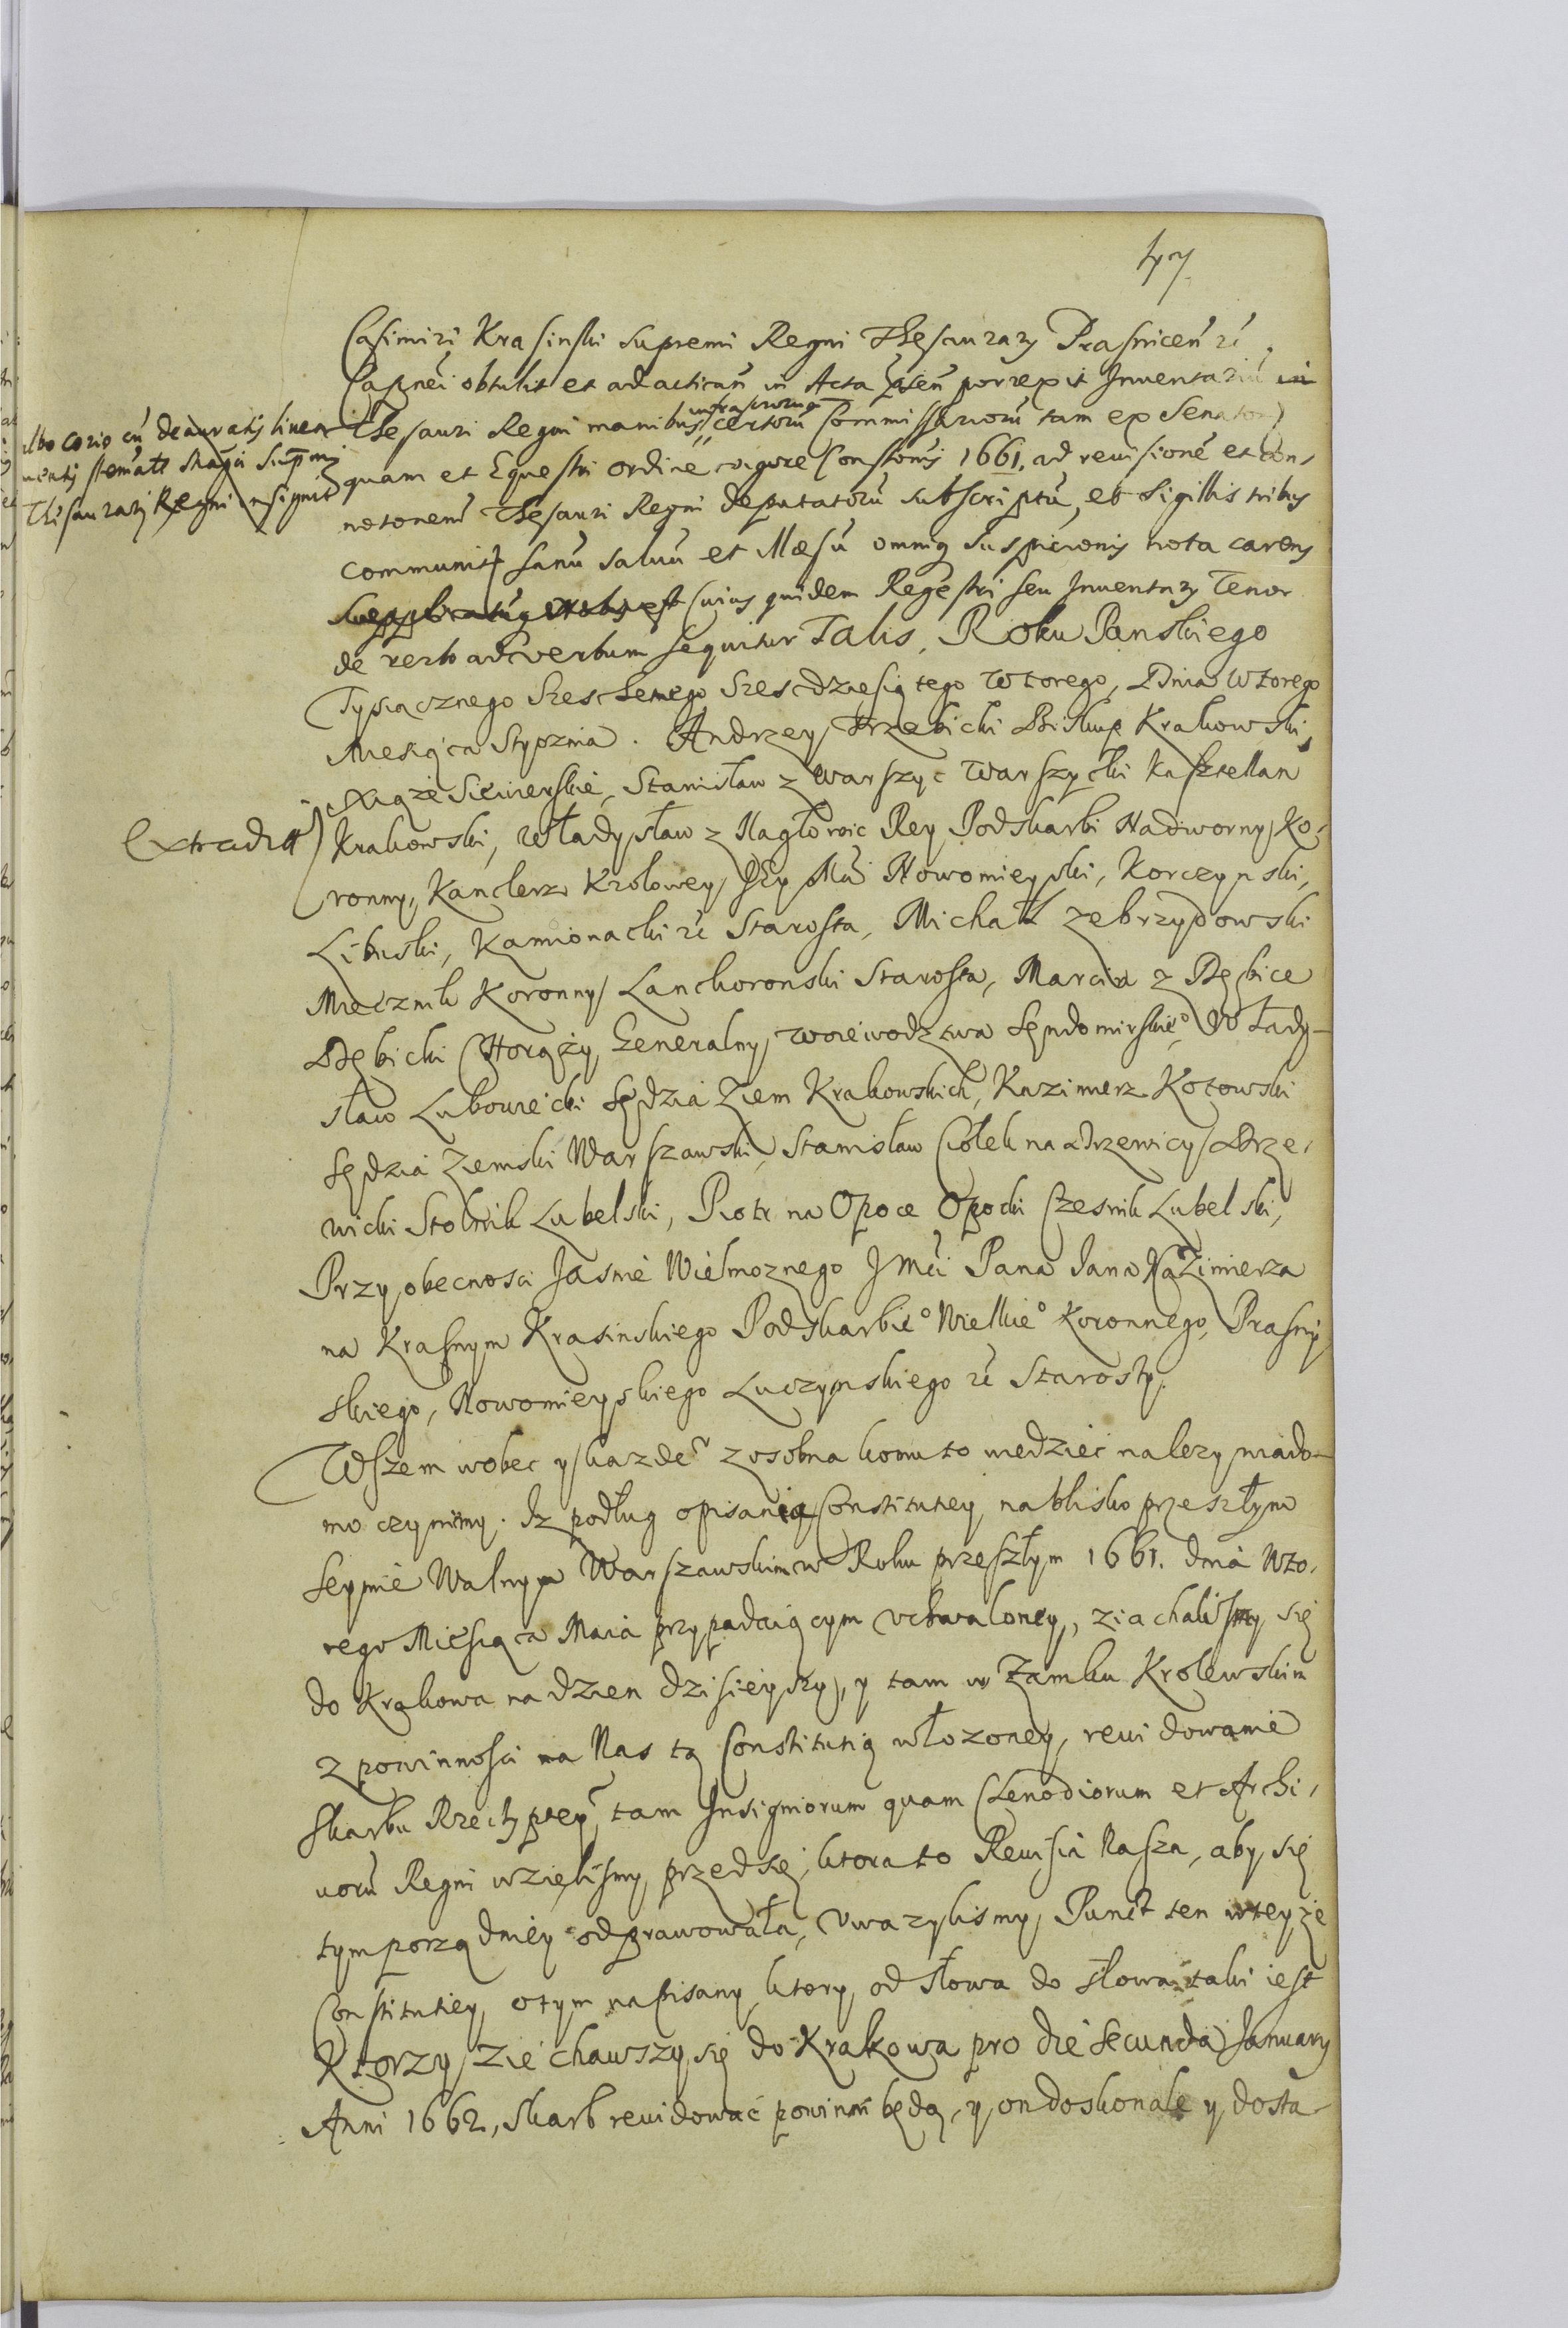 47.
Casimiri Krasinski Supremi Regni Thesaurarij Prasnicen̄ rc
Capnei obtulit et ad actican̄ in Acta p̄sen̄ porrexit Inventariū in
albo corio cū deauratis linea
mentis stemate Magci Supmi
Thesaurarij Regni insignit
Thesauri Regni manibus infrascriptorū certorū Commissariorū tam ex Senatorio
quam et Equestri ordine vigore Constonis 1661. ad revisionē et con-
notonem Thesauri Regni deputatorū subscriptū, et Sigillis tribus
communit Sanū salvū et illæsū omniq suspicionis nota carens
Cuius quidem Regestri seu Inventarij Tenor
de verbo ad verbum sequitur Talis, Roku Panskiego
Tysiącznego Szescsetnego Szescdziesiątego Wtorego, Dnia Wtorego
Miesiąca Stycznia. Andrzey Trzebicki Biskup Krakowski,
Xiąże Siewierskie, Stanisław z Warszyc Warszycki Kasztellan
Extradit
Krakowski, Władysław z Nagłowic Rey Podskarbi Nadworny Ko-
ronny, Kanclerz Krolowey Jey Mci Nowomieyski, Korczynski,
Libuski, Kamionacki rc Starosta, Michał Zebrzydowski
Miecznik Koronny Lanckoronski Starosta, Marcin z Dębice
Dębicki Chorąży Generalny Woiewodztwa Sendomirskieo, Włady-
sław Lubowiecki Sędzia Ziem Krakowskich, Kazimierz Kotowski
Sędzia Ziemski Warszawski, Stanisław Ciołek na Drzewicy Drze-
wicki Stolnik Lubelski, Piotr na Opoce Opocki Czesnik Lubelski,
Przy obecnosci Jasnie Wielmoznego JMci Pana Jana Kazimierza
na Krasnym Krasinskiego Podskarbieo Wielkieo Koronnego, Prasny
skiego, Nowomieyskiego Luczynskiego rc Starosty.
Wszem wobec y kazdeo zosobna komu to wiedziec nalezy wiado-
mo czynimy. Iz podług opisania Constitutiey, na blisko przeszłym
Seymie Walnym Warszawskim w Roku przeszłym 1661. dnia Wto-
rego Miesiąca Maia przypadaiącym uchwaloney, ziachalismy się
do Krakowa na dzien dzisieyszy, y tam w Zamku Krolewskim
z powinnosci na Nas tą Constitutią włozoney, rewidowanie
Skarbu Rzeczyptey, tam Insigniorum quam Clenodiorum et Archi-
vorū Regni wzielismy przed się, ktora to Rewisia Nasza, aby się
tym porządniey odprawowała, Uwazylismy, Punct ten wteyże
Constitutiey, otym napisany, ktory, od słowa do słowa taki iest
Ktorzy Ziechawszy się do Krakowa pro die secunda January
Anni 1662, skarb rewidować powinni będą, y on doskonale y dosta-